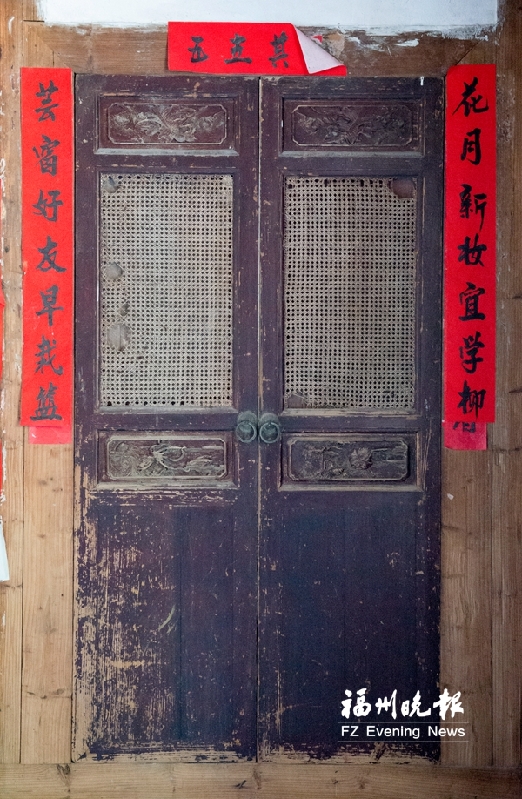 五世其
花月新妆宜学柳
芸窗好友早栽篮
福州晚报
FZ Evening News